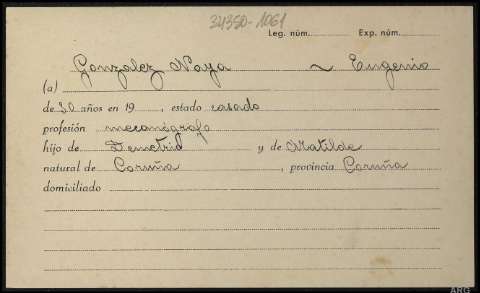 34350-1061
Leg. núm. Exp. núm.
Gonzalez Naya ~ Eugenio
(a)
de 30 años en 19 , estado casado
profesión mecanógrafo
hijo de Demetrio y de Matilde
natural de Coruña , provincia Coruña
domiciliado
ARG